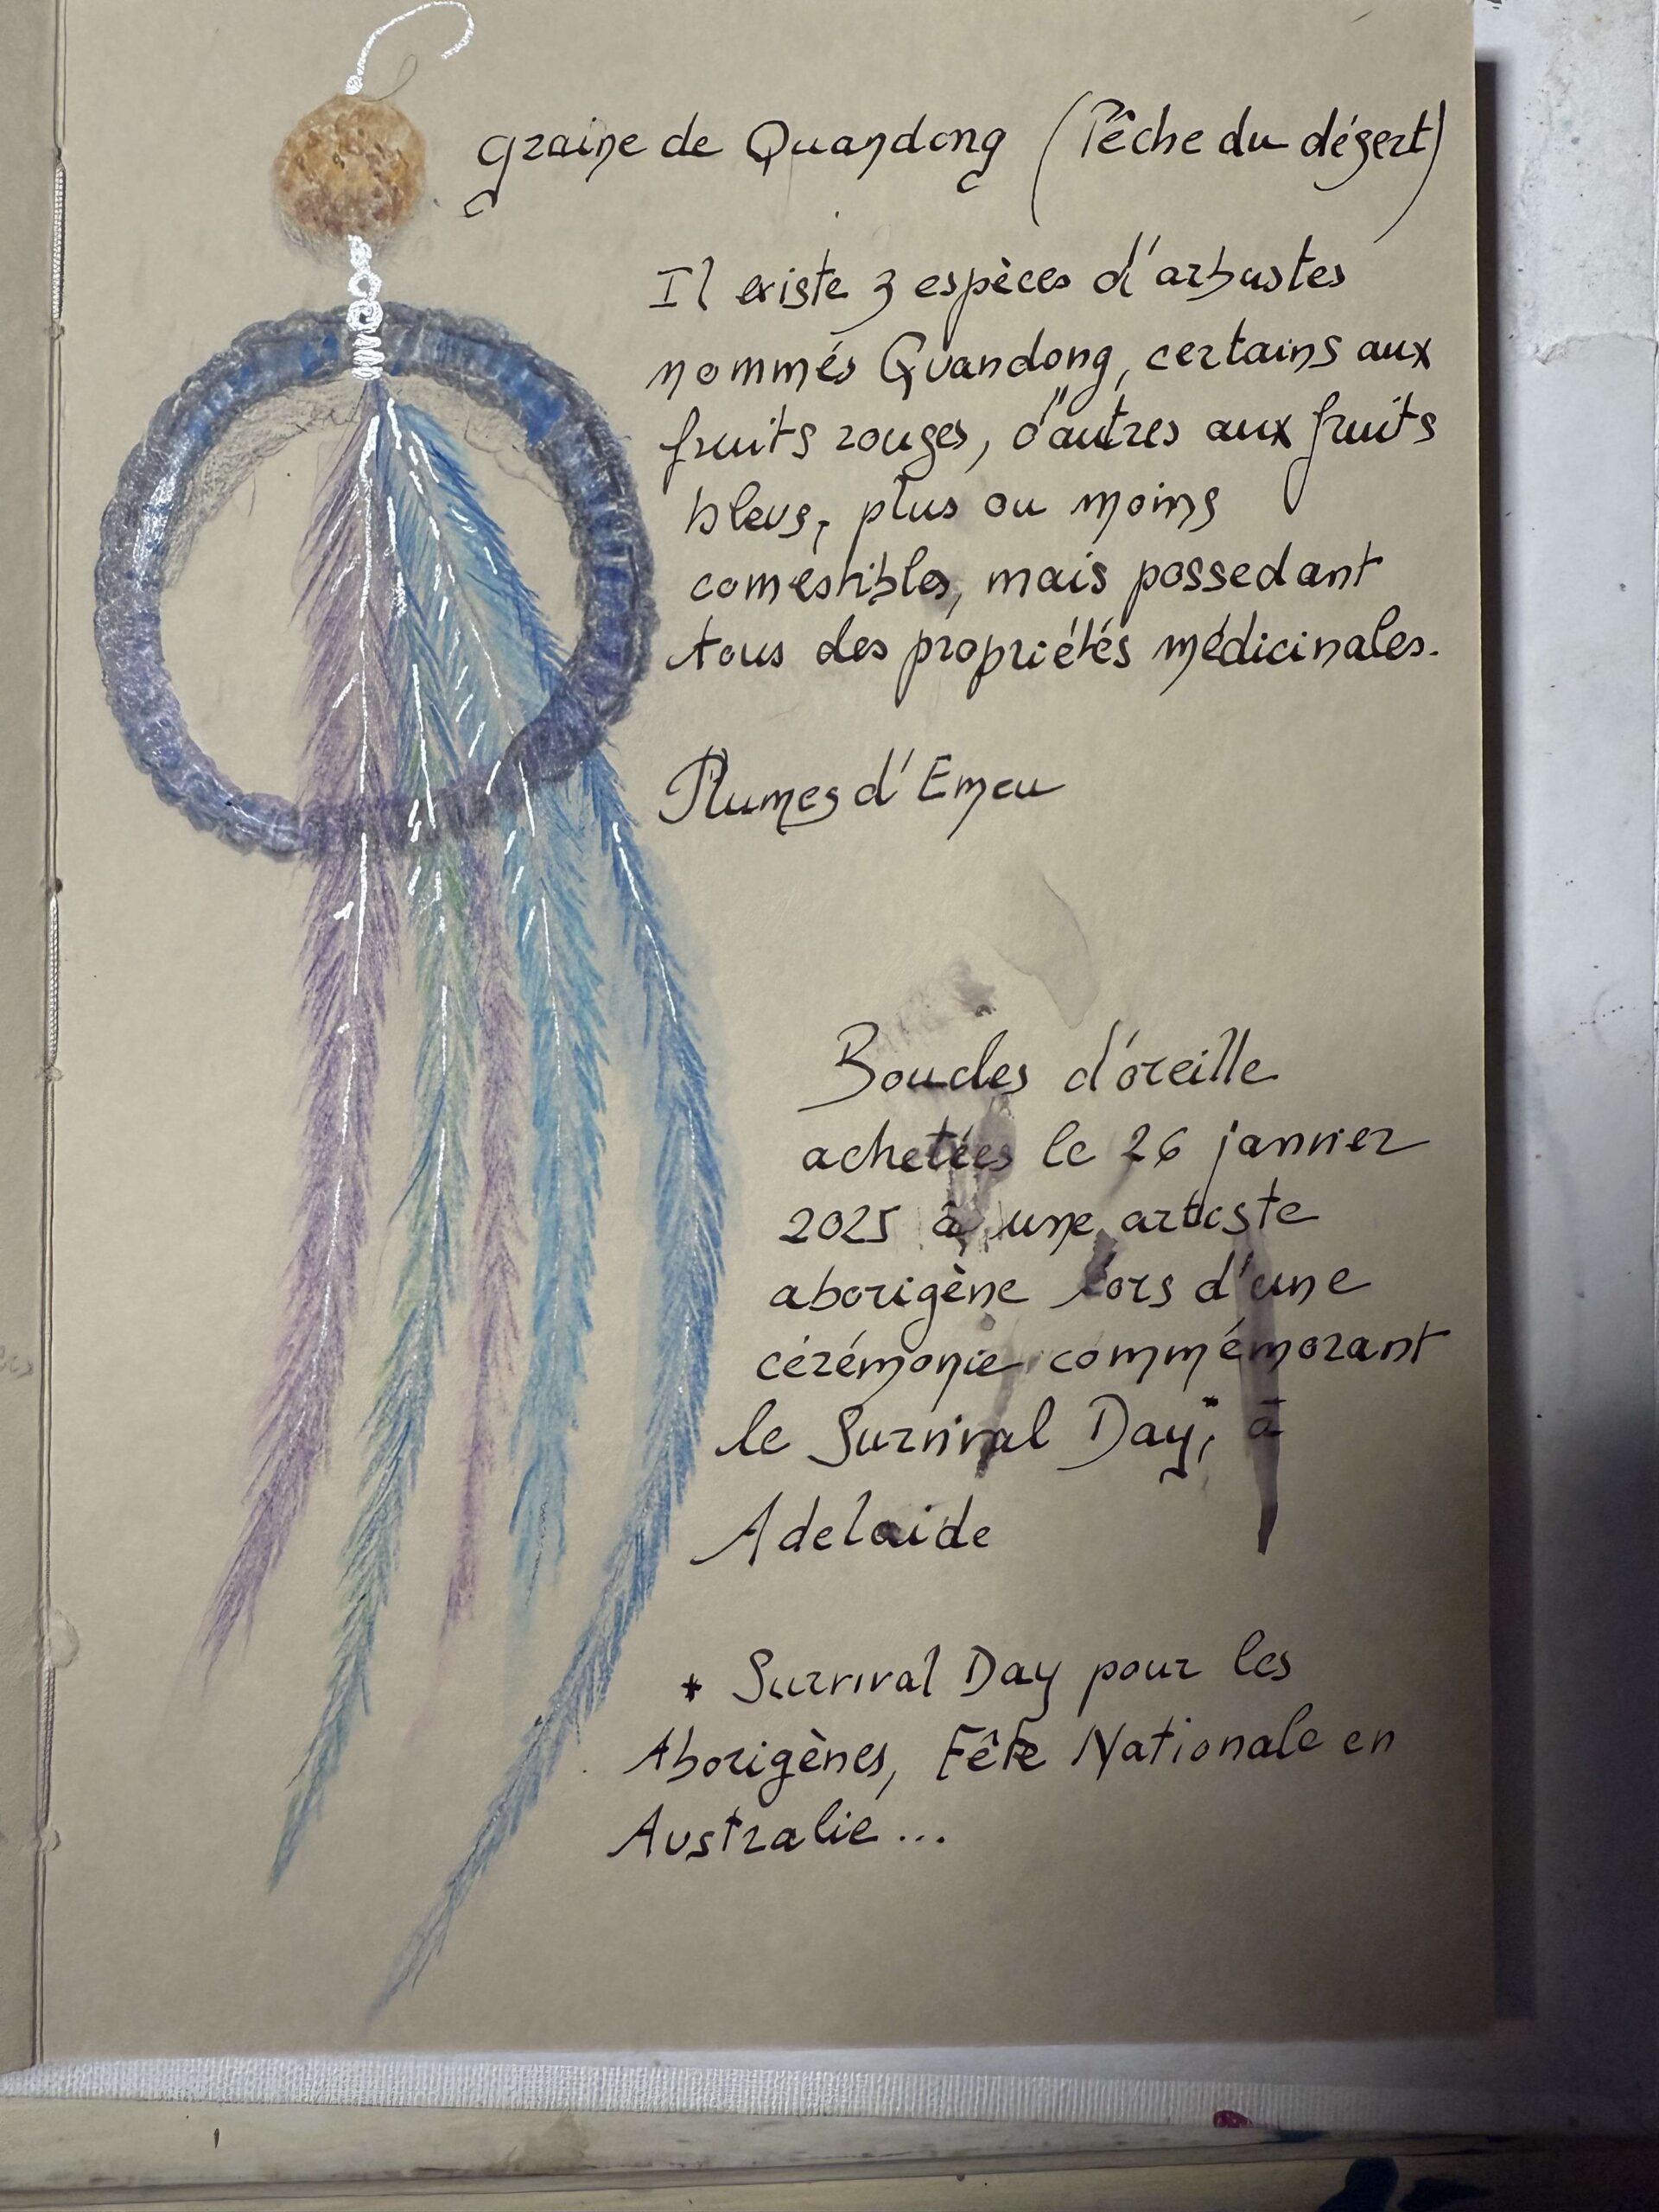 graine de Quandong (Pêche du désert)
Il existe 3 espèces d'arbustes
nommés Quandong, certains aux
fruits rouges, d'autres aux fruits
bleus, plus ou moins
comestibles, mais possedant
tous des propriétés médicinales.
Plumes d'Emeu
Boucles d'oreille
achetées le 26 janvier
2025 à une artiste
aborigène lors d'une
cérémonie commémorant
le Survival Day*, à
Adelaide
* Survival Day pour les
Aborigènes, Fête Nationale en
Australie...